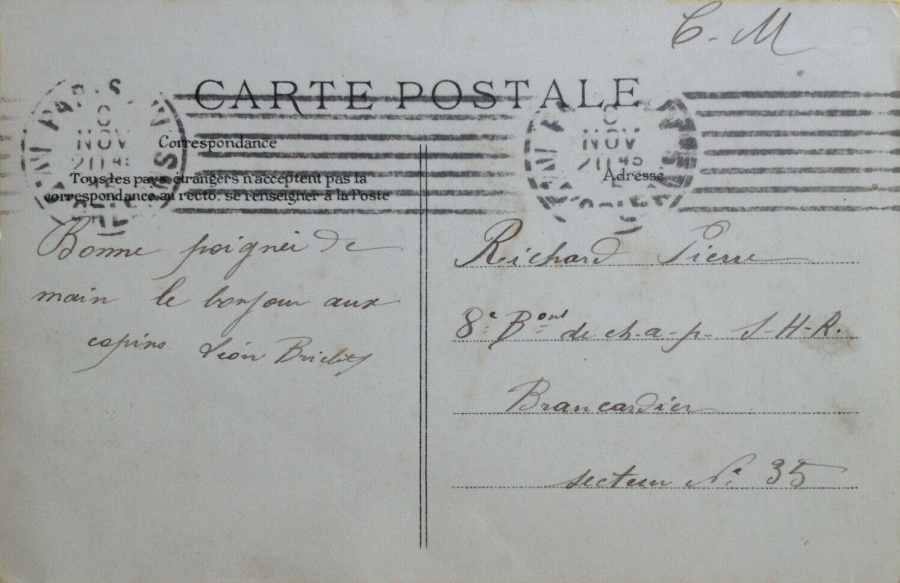 C. M
CARTE POSTALE
PARIS
NOV
20 45
NOV
20 45
Correspondance
Tous les pays étrangers n'acceptent pas la
correspondance au recto, se renseigner à la Poste
Adresse
Bonne poignei de
main le bonjour aux
copins Léon
Richard Pierre
8e Bont de ch-a-p- S-H-R.
Brancardier
secteur No 35